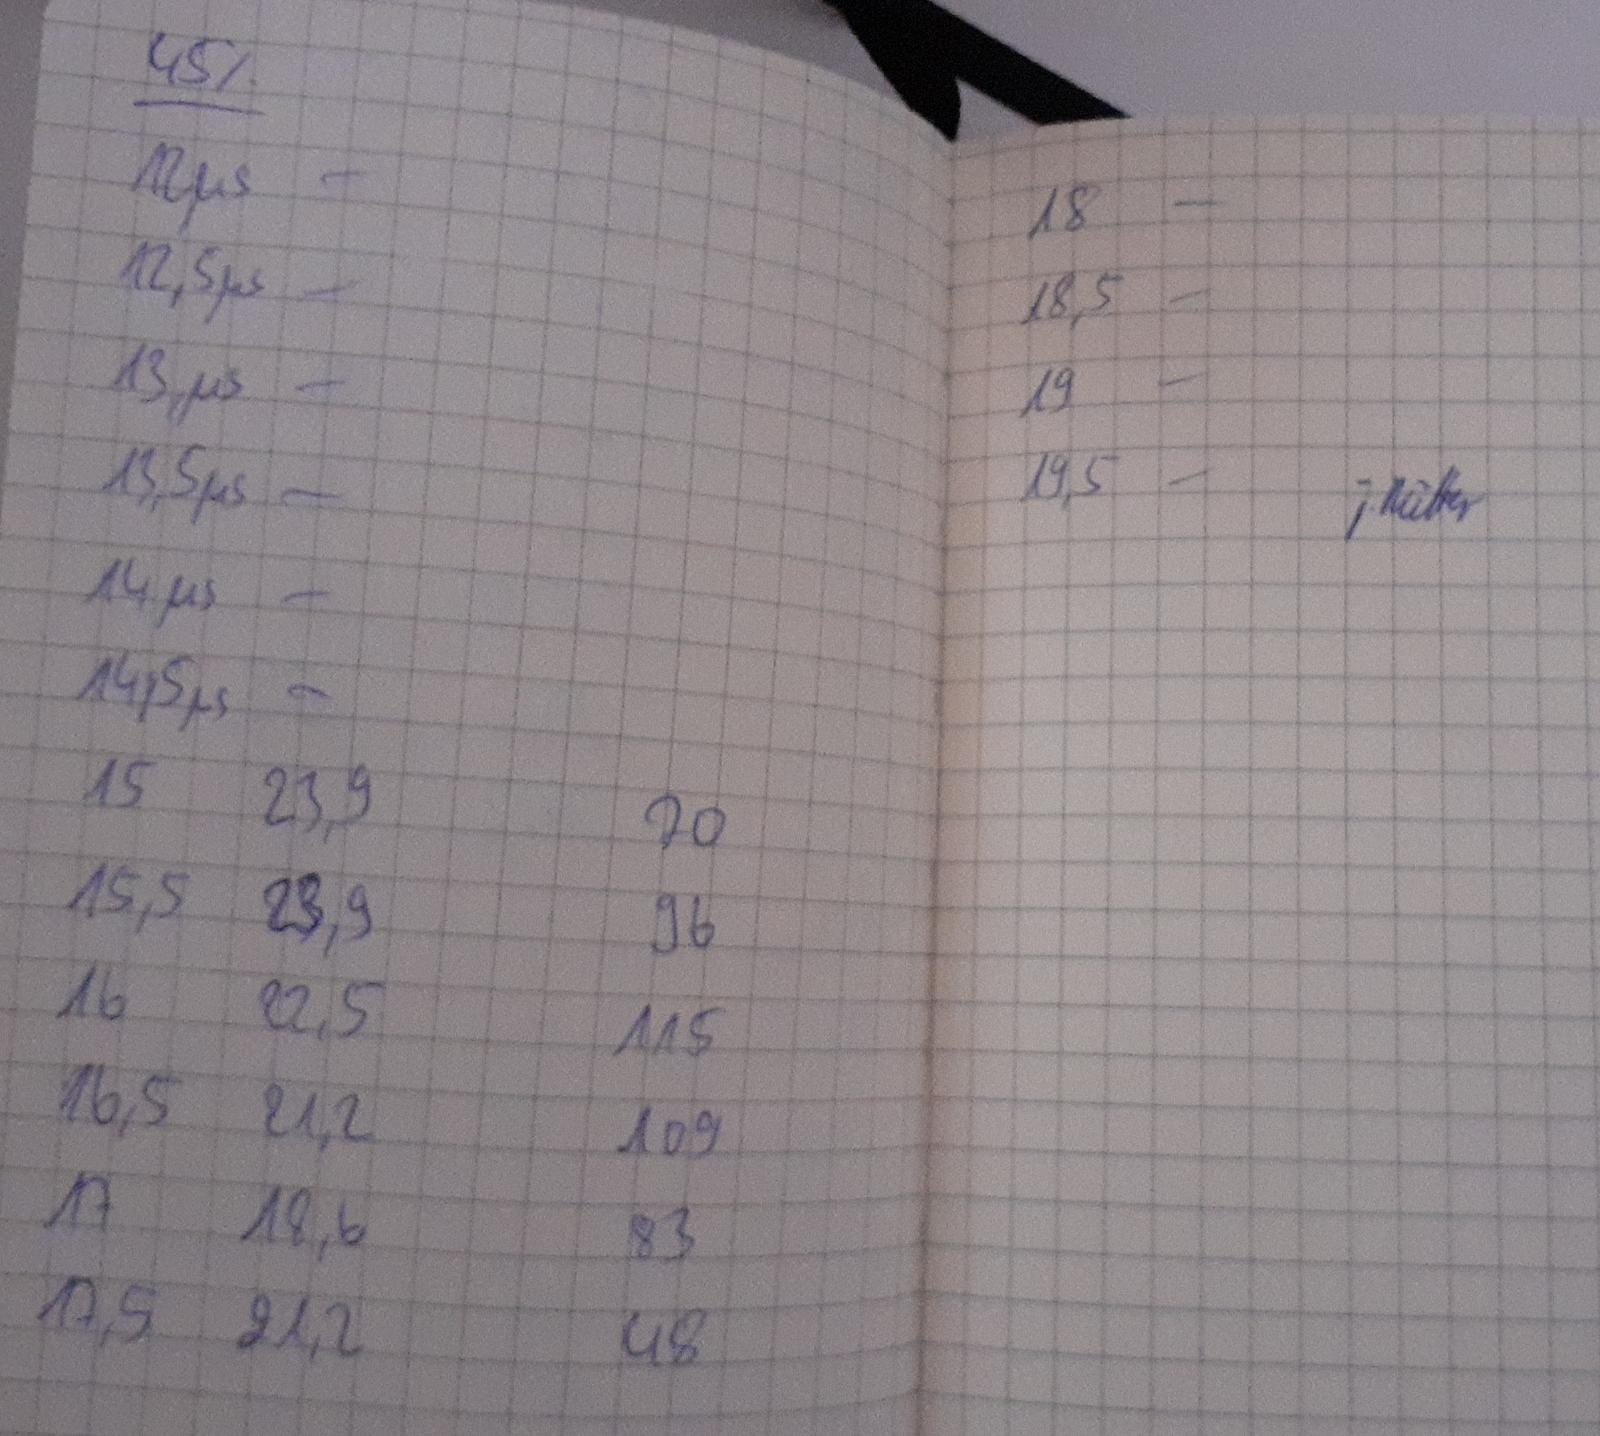 45%
12µs –
12,5µs –
13µs –
13,5µs –
14µs –
14,5µs –
15 23,9 70
15,5 23,9 96
16 22,5 115
16,5 21,2 109
17 18,6 83
17,5 21,2 48
18 –
18,5 –
19 –
19,5 –